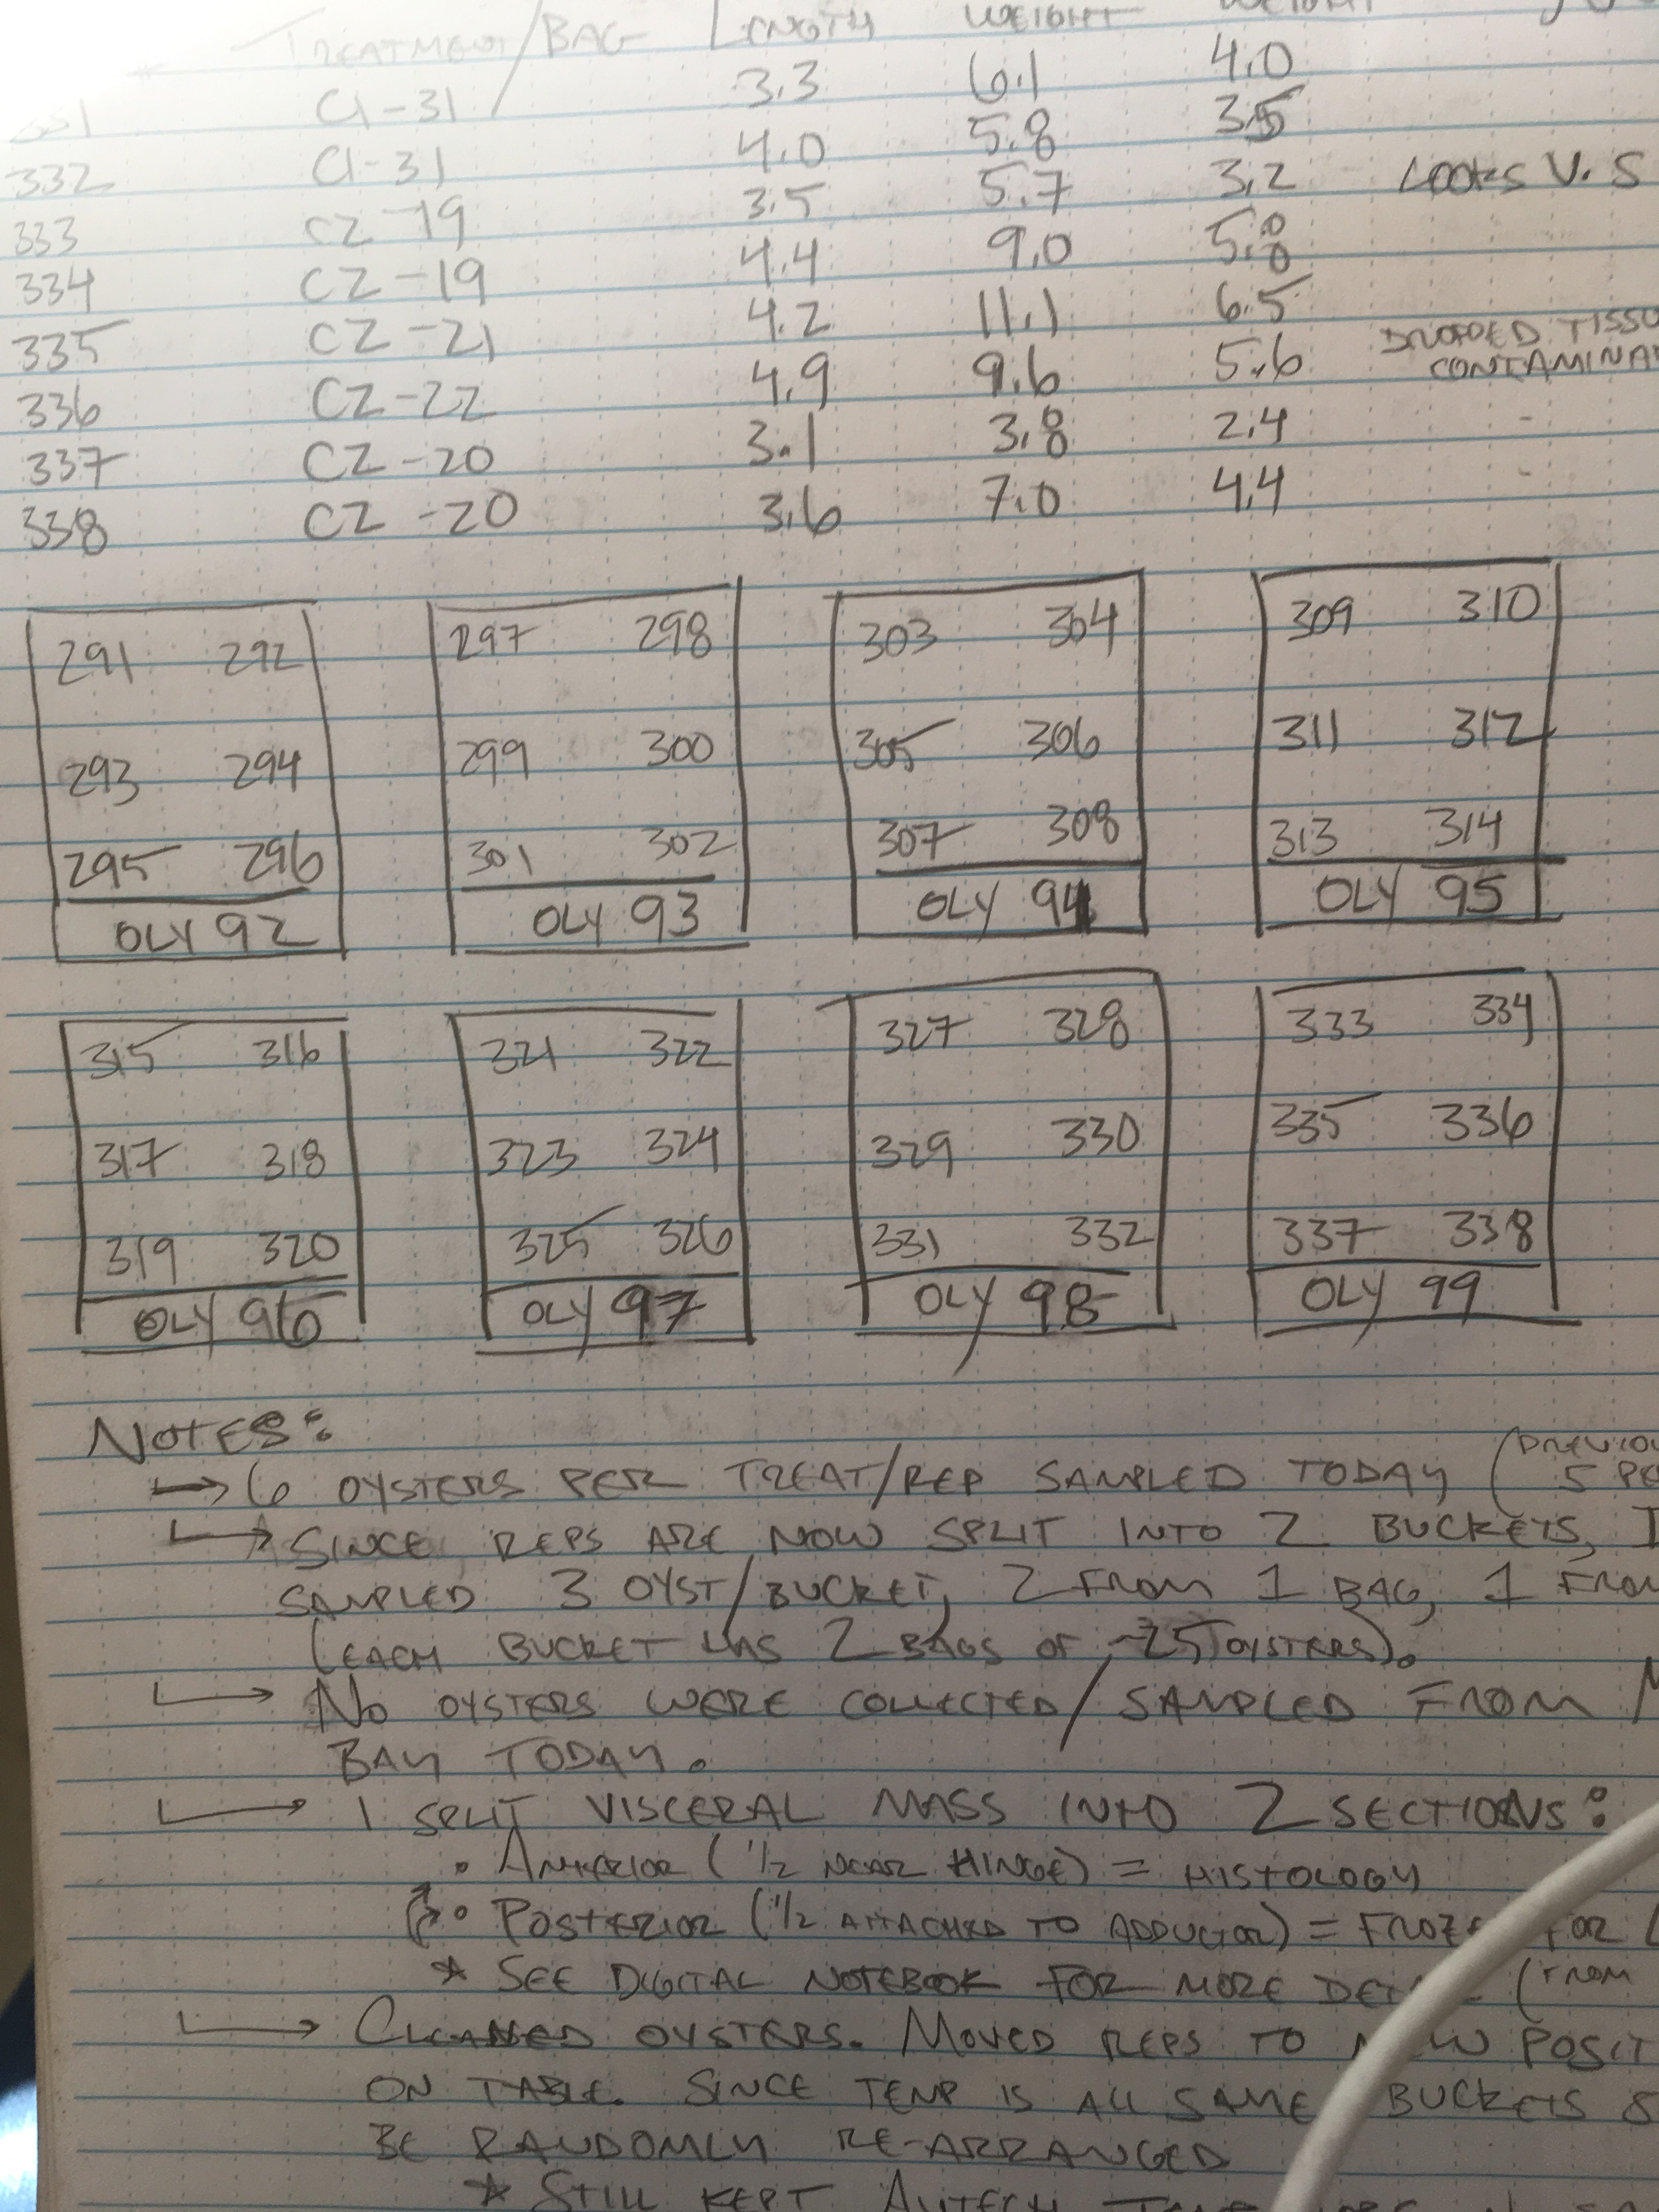 TREATMENT/BAG LENGTH WEIGHT WEIGHT
331 C1-31 3.3 6.1 4.0
332 C1-31 4.0 5.8 3.5
333 C2-19 3.5 5.7 3.2 LOOKS V. S
334 C2-19 4.4 9.0 5.8
335 C2-21 4.2 11.1 6.5
336 C2-22 4.9 9.6 5.6 DROPPED TISSU
CONTAMINA
337 C2-20 3.1 3.8 2.4 -
338 C2-20 3.6 7.0 4.4 -
291 292 297 298 303 304 309 310
293 294 299 300 305 306 311 312
295 296 301 302 307 308 313 314
OLY 92 OLY 93 OLY 94 OLY 95
315 316 321 322 327 328 333 334
317 318 323 324 329 330 335 336
319 320 325 326 331 332 337 338
OLY 96 OLY 97 OLY 98 OLY 99
NOTES:
→ 6 OYSTERS PER TREAT/REP SAMPLED TODAY (PREVIOU
5 PE
→ SINCE REPS ARE NOW SPLIT INTO 2 BUCKETS, I
SAMPLED 3 OYST/BUCKET, 2 FROM 1 BAG, 1 FROM
(EACH BUCKET HAS 2 BAGS OF ~25 OYSTERS).
→ NO OYSTERS WERE COLLECTED/SAMPLED FROM
BAY TODAY.
→ I SPLIT VISCERAL MASS INTO 2 SECTIONS:
• ANTERIOR (1/2 NEAR HINGE) = HISTOLOGY
• POSTERIOR (1/2 ATTACHED TO ADDUCTOR) = FROZE FOR
* SEE DIGITAL NOTEBOOK FOR MORE DETAI (FROM
→ CLEANED OYSTERS. MOVED REPS TO NEW POSIT
ON TABLE. SINCE TEMP IS ALL SAME BUCKETS
BE RANDOMLY RE-ARRANGED
* STILL KEPT